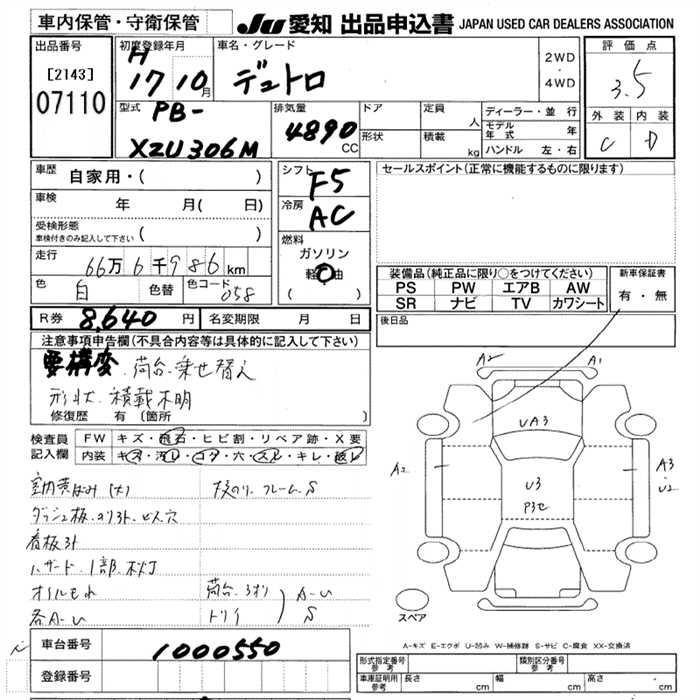 車内保管・守衛保管
JU 愛知 出品申込書 JAPAN USED CAR DEALERS ASSOCIATION
出品番号
[2143]
07110
初度登録年月
H
17 10月
車名・グレード
デュトロ
2WD
4WD
評価点
3.5
外装 内装
C D
型式
PB-
XZU306M
排気量
4890
CC
ドア
形状
定員
人
積載
kg
ディーラー・並行
モデル年式 年
ハンドル 左・右
車歴
自家用・( )
車検
年 月( 日)
受検形態
車検付きのみ記入して下さい
( )
走行
66万6千986km
色
白
色替
色コード
058
シフト
F5
冷房
AC
燃料
ガソリン
軽油
( )
セールスポイント(正常に機能するものに限ります)
装備品(純正品に限り○をつけてください)
PS PW エアB AW
SR ナビ TV カワシート
新車保証書
有・無
後日品
R券 8,640円
名変期限 月 日
注意事項申告欄(不具合内容等は具体的に記入して下さい)
要構変 荷台乗せ替え
形状、積載不明
修復歴 有 [箇所 ]
検査員記入欄
FW キズ・飛石・ヒビ割・リペア跡・X要
内装 キズ・汚レ・コゲ・穴・スレ・キレ・破レ
室内黄ばみ(大)
フレームS
ダッシュ板
穴
看板
ハザード 1部
オイルもれ
各A-U
荷台
トリイ
A-U
S
A2 A1
UA3
A2
U3
P3セ
A3
U2
スペア
A-キズ E-エクボ U-凹み W-補修跡 S-サビ C-腐食 XX-交換済
車台番号
1000550
登録番号
形式指定番号
参考
類別区分番号
参考
車庫証明用
参考
長さ cm
幅 cm
高さ cm